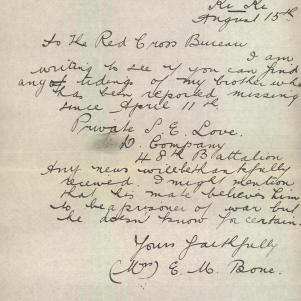 Ki Ki
August 15th
To the Red Cross Bureau
I am
writing to see if you can find
any tidings of my brother who
has been reported missing
since April 11th
Private S E. Love.
D. Company
48th Battalion
Any news will be thankfully
received. I might mention
that his mate believes him
to be a prisoner of war but
he doesn't know for certain.
Yours faithfully
(Mrs) E. M. Bone.